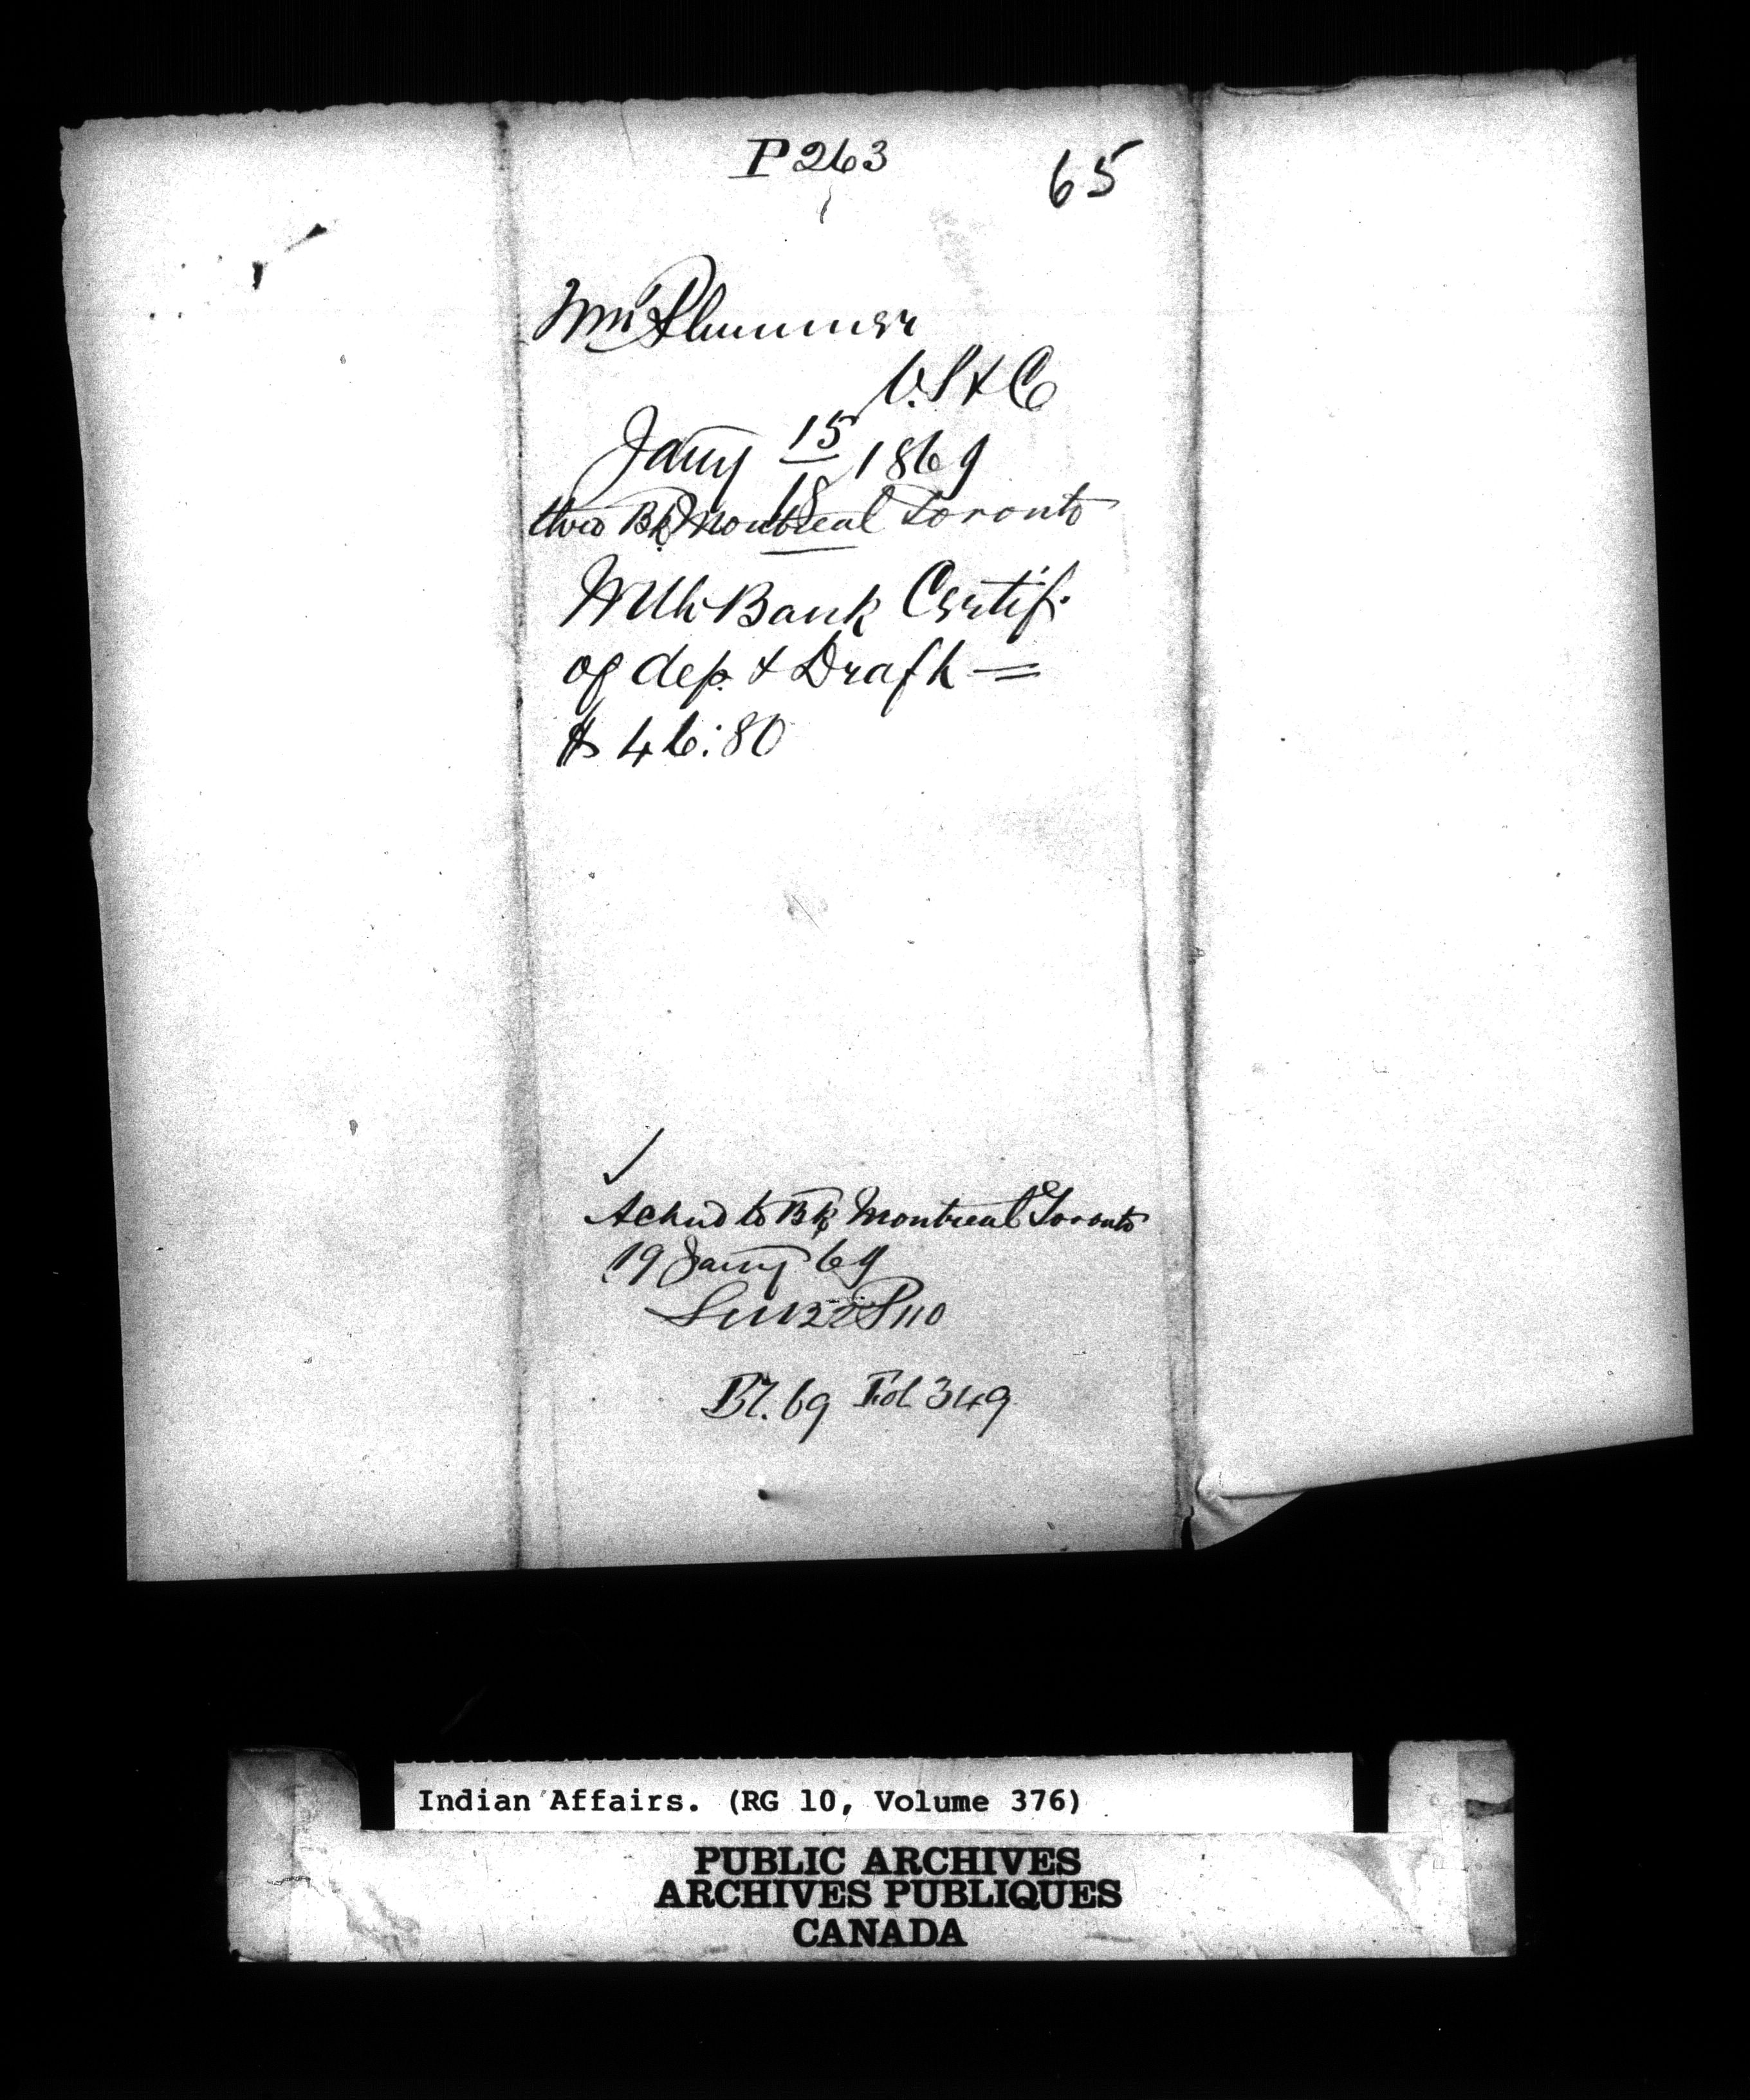 P 263
65
Wm Plummer
V. S & C
Jany 15 1869
18
thro Bk Montreal Toronto
With Bank Certif.
of dep. & Draft =
$ 46:80
Acknd to Bk Montreal Toronto
19 Jany 69
P 110
Bl. 69 Fol 349
Indian Affairs. (RG 10, Volume 376)
PUBLIC ARCHIVES
ARCHIVES PUBLIQUES
CANADA